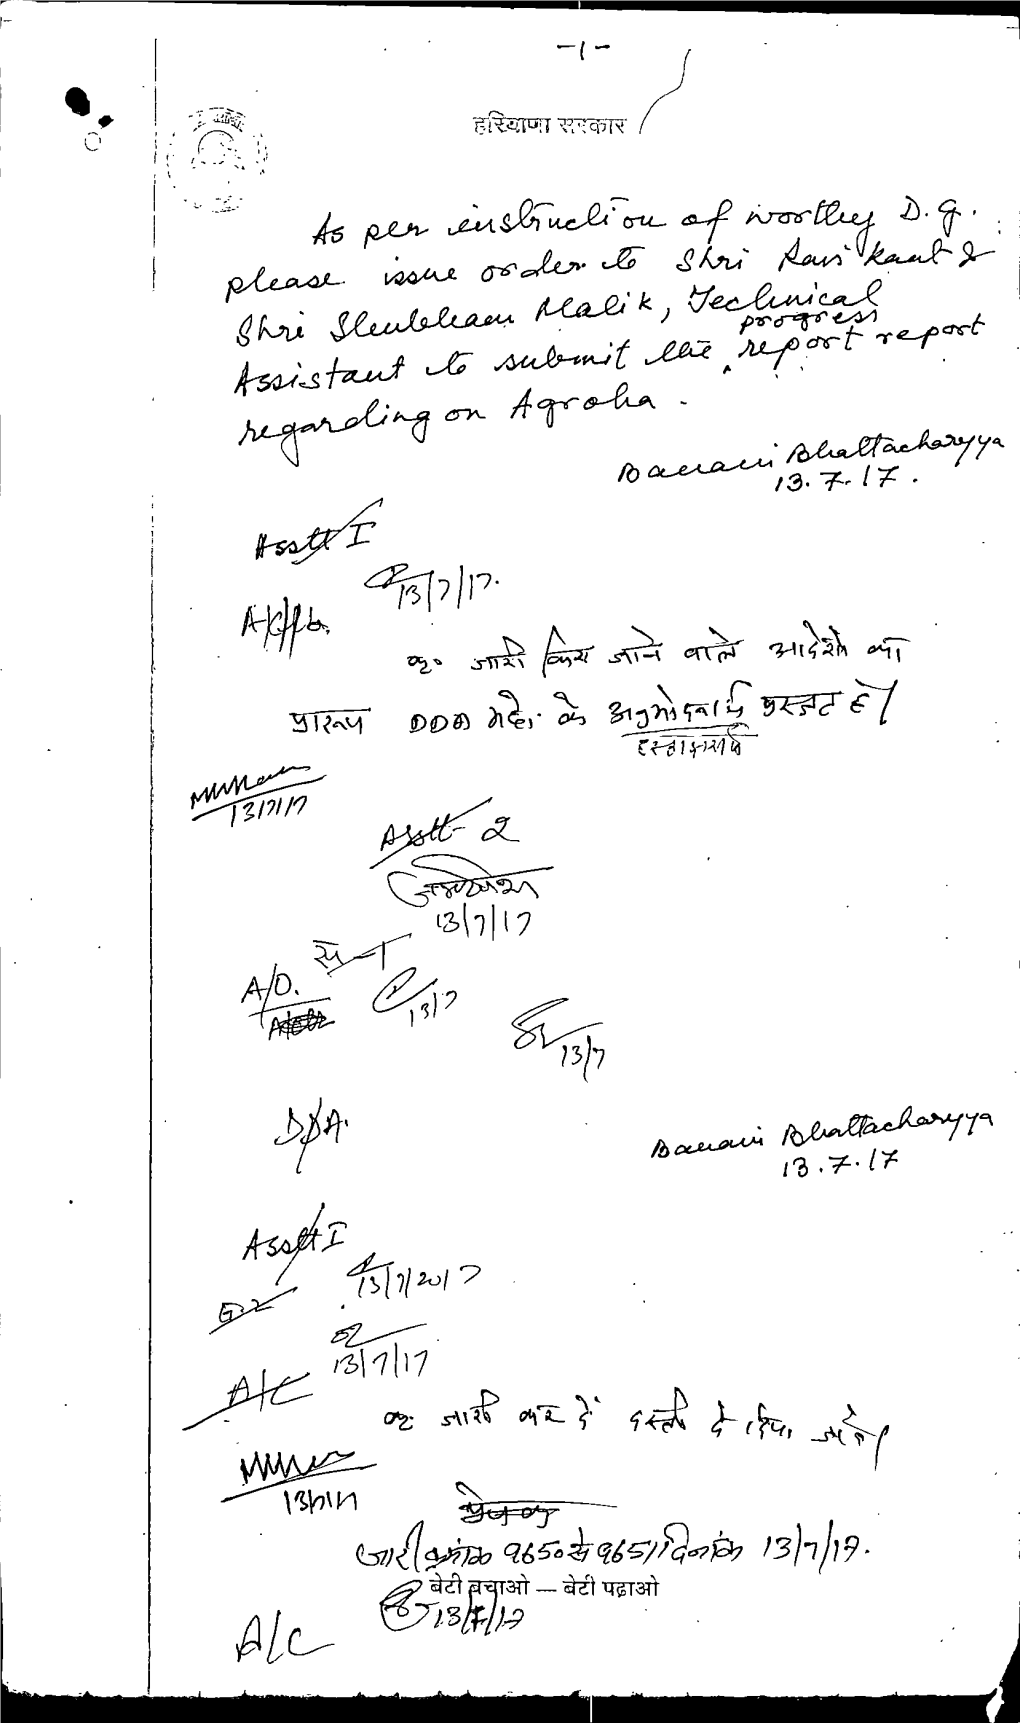 -1-
हरियाणा सरकार
As per instruction of worthy D.G.
please issue order to Shri Ravi Kant &
Shri Shubham Malik, Technical
progress
Assistant to submit the report report
regarding on Agroha.
Banani Bhattacharyya
13.7.17.
Asstt I
13/7/17.
कृ० जारी किए जाने वाले आदेशों का
प्रारूप DDO महो. के अनुमोदनार्थ प्रस्तुत है।
हस्ताक्षरार्थ
13/7/17
Asstt-2
13/7/17
A/O.
13/7
13/7
Banani Bhattacharyya
13.7.17
Asstt I
13/7/2017
13/7/17
A/C
कृ. जारी कर दें दस्ती दे दिया जावे।
13/7/17
जारी क्रमांक 9650 से 9651 दिनांक 13/7/17.
बेटी बचाओ – बेटी पढ़ाओ
13/7/17
A/C